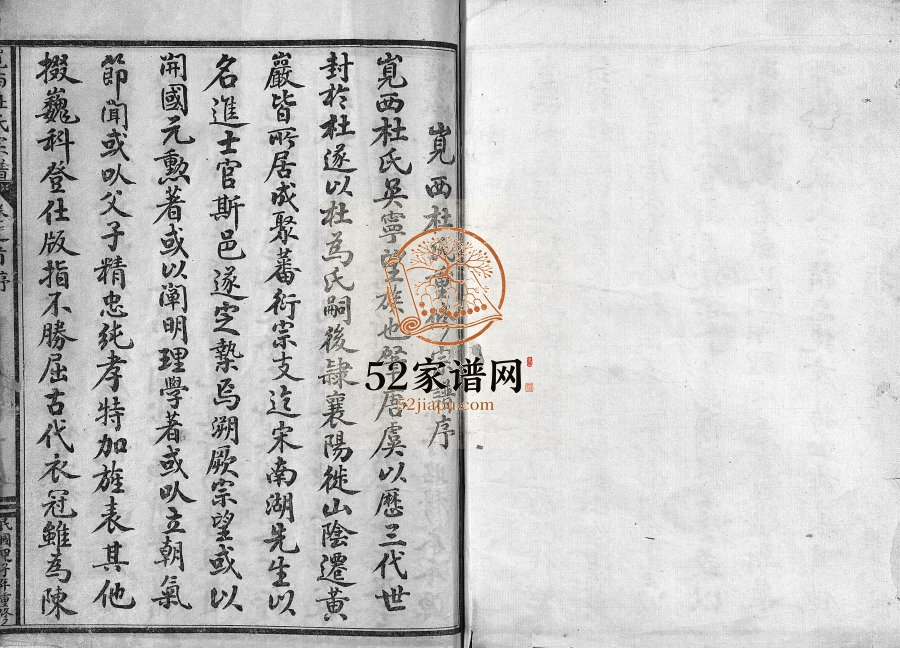 峴西杜氏重修宗譜序
峴西杜氏吳寧望族也肇唐虞以歷三代世
封於杜遂以杜為氏嗣後隷襄陽徙山陰遷黃
嚴皆所居成聚蕃衍宗支迄宋南湖先生以
名進士官斯邑遂定摯焉朔厥宗望或以
開國元勳著或以闡明理學著或以立朝氣
節聞或以父子精忠純孝特加旌表其他
掇巍科登仕版指不勝屈古代衣冠雖為陳
杜氏宗譜
民國甲子年重修
52家谱网
52jiapu.com